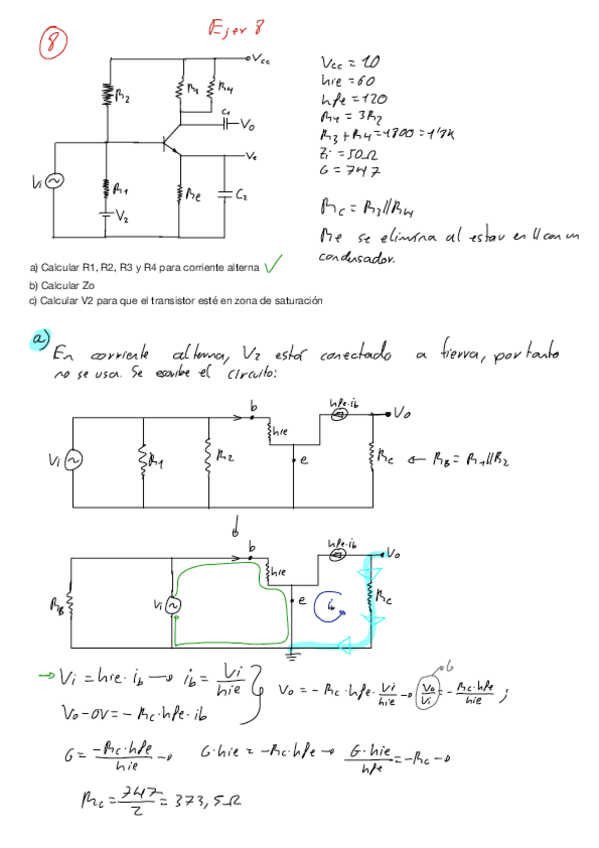 Ejer 8
8
Vcc
R3
R4
R2
C1
Vo
Ve
Vi
R1
Re
C2
V2
Vcc = 10
hie = 60
hfe = 120
R1 = 3R2
R3 + R4 = 1800 = 1'8K
Zi = 50Ω
G = 747
Rc = R3//R4
Re se elimina al estar en // con un
condensador.
a) Calcular R1, R2, R3 y R4 para corriente alterna ✓
b) Calcular Zo
c) Calcular V2 para que el transistor esté en zona de saturación
a)
En corriente alterna, V2 estar conectado a tierra, por tanto
no se usa. Se escribe el circuito:
b
hfe·ib
Vo
hie
Vi
R1
R2
e
Rc ← RB = R1//R2
b
hfe·ib
Vo
hie
RB
Vi
e
ib
Rc
→ Vi = hie·ib → ib = Vi/hie
Vo - 0V = -Rc·hfe·ib
Vo = -Rc·hfe·Vi/hie → Vo/Vi = -Rc·hfe/hie ;
G
G = -Rc·hfe/hie → G·hie = -Rc·hfe → G·hie/hfe = -Rc →
Rc = 747/2 = 373,5Ω